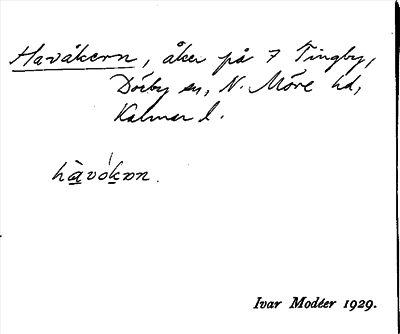 Havåkern, åker på 7 Tingby,
Dörby sn, N. Möre hd,
Kalmar l.
Ivar Modéer 1929.